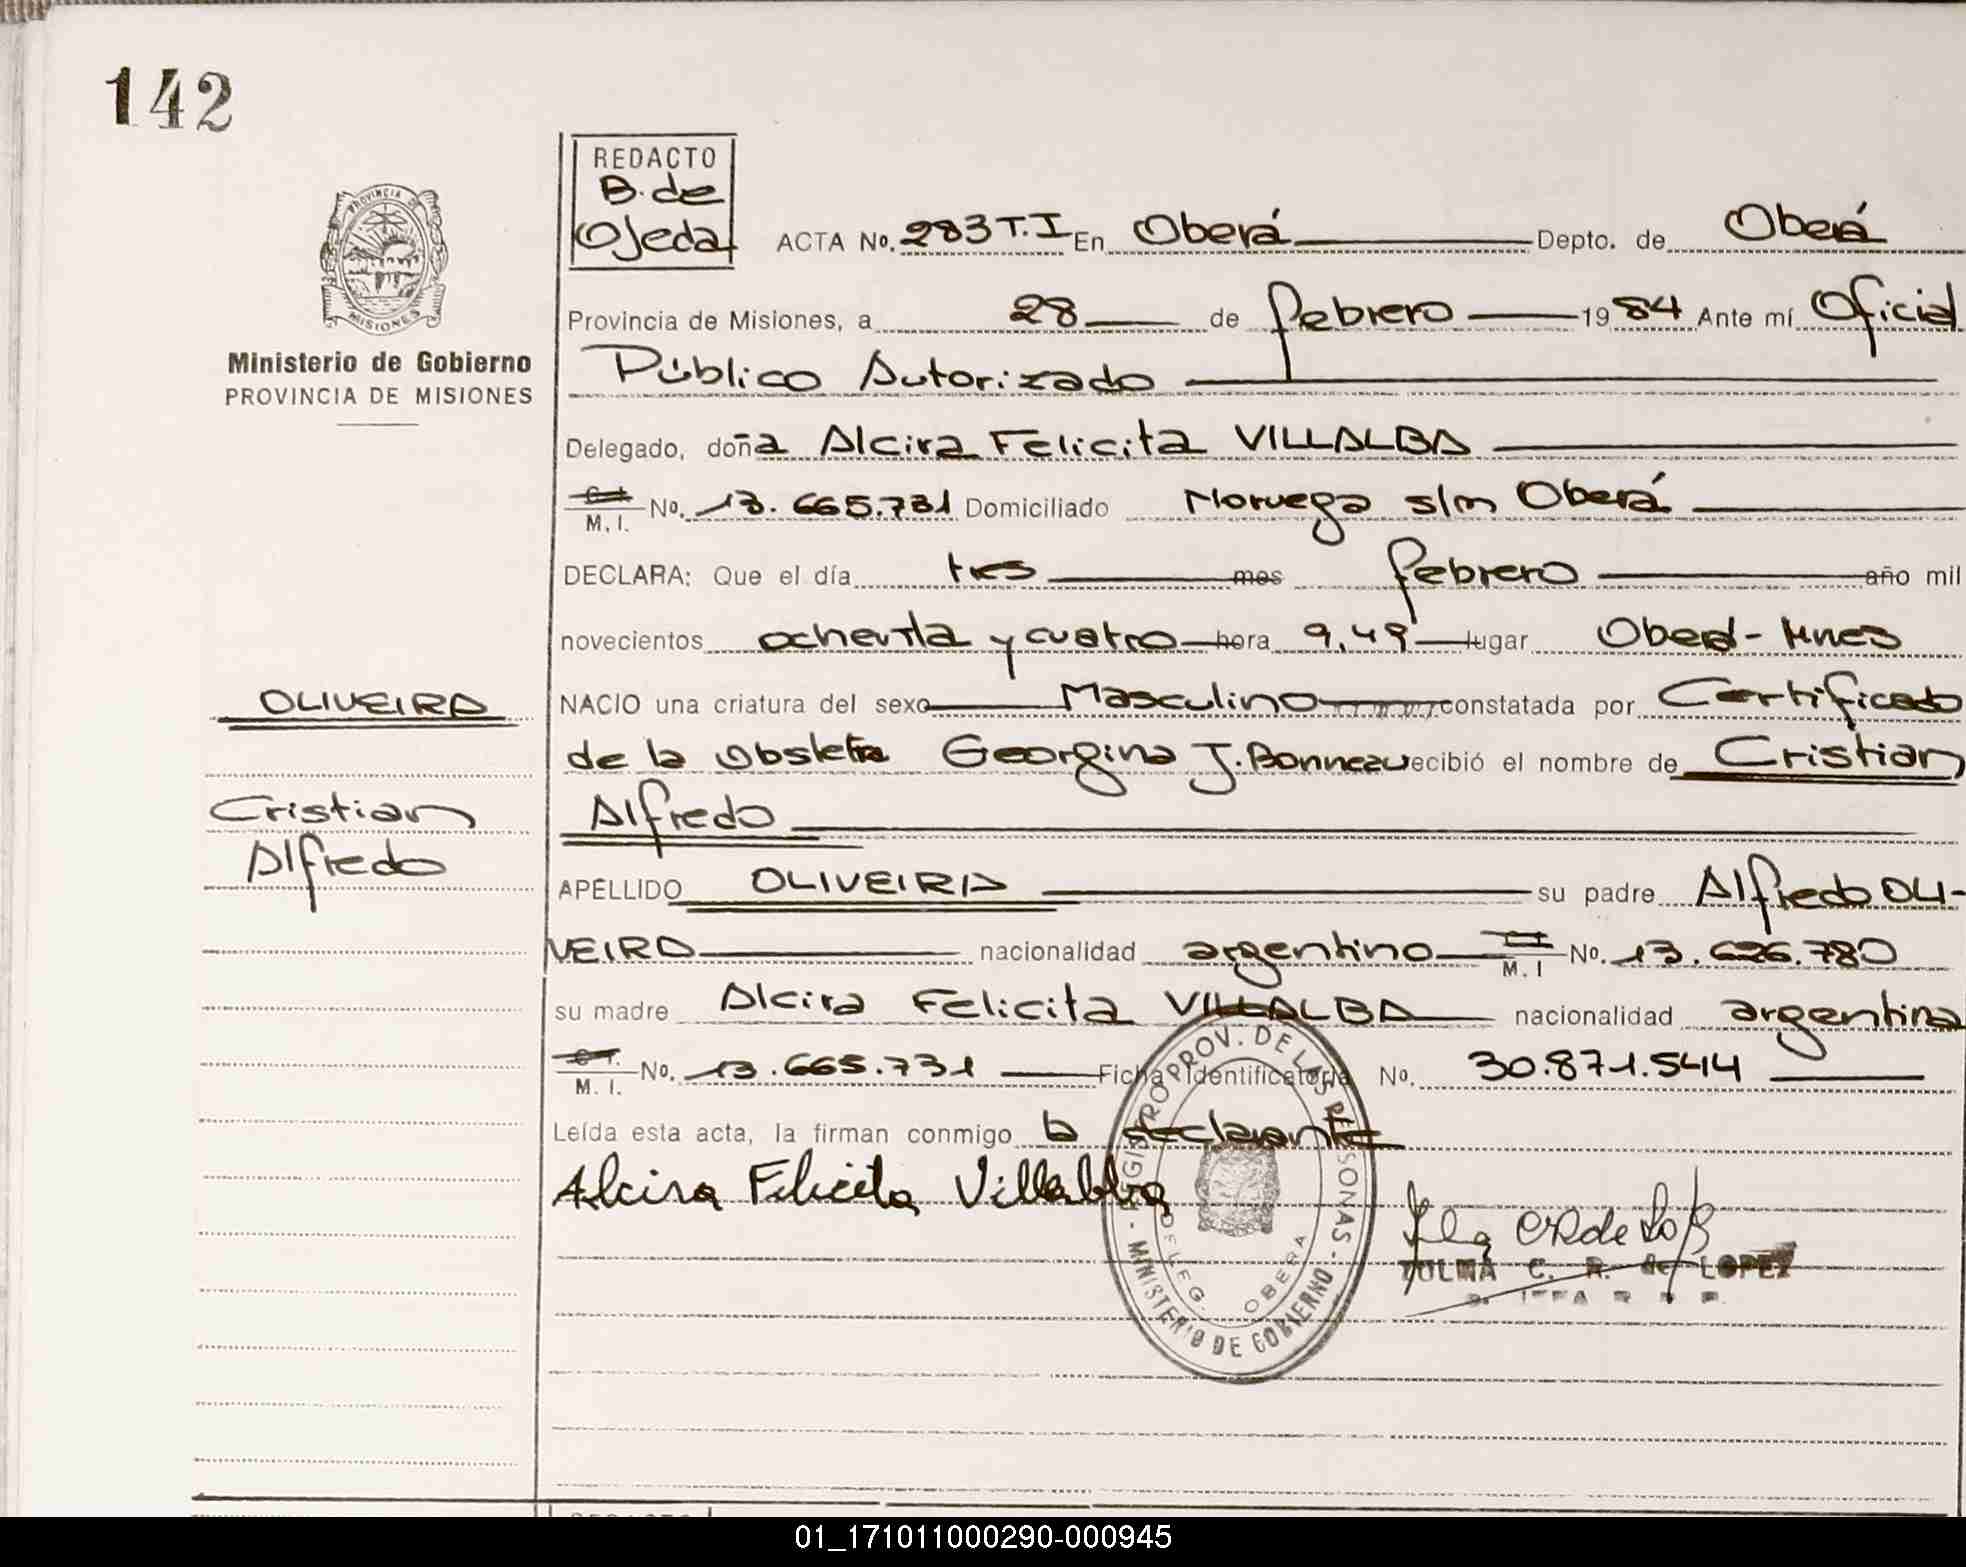 142
REDACTO
B. de
Ojeda
PROVINCIA DE
MISIONES
Ministerio de Gobierno
PROVINCIA DE MISIONES
ACTA No. 283 T. I En Oberá Depto. de Oberá
Provincia de Misiones, a 28 de febrero 1984 Ante mí Oficial
Público Autorizado
Delegado, doña Alcira Felicita VILLALBA
C. I. M. I. No. 13.665.731 Domiciliado Noruega s/n Oberá
DECLARA: Que el día tres mes febrero año mil
novecientos ochenta y cuatro hora 9,49 lugar Oberá - Mnes
OLIVEIRA
NACIO una criatura del sexo Masculino constatada por Certificado
de la Obstetra Georgina J. Bonneau recibió el nombre de Cristian
Cristian
Alfredo
Alfredo
APELLIDO OLIVEIRA su padre Alfredo OLI-
VEIRA nacionalidad argentino C. I. M. I No. 13.626.780
su madre Alcira Felicita VILLALBA nacionalidad argentina
C. I. M. I. No. 13.665.731 Ficha Identificatoria No. 30.871.544
Leída esta acta, la firman conmigo la declarante
Alcira Felicita Villalba
REGISTRO PROV. DE LAS PERSONAS
MINISTERIO DE GOBIERNO
DELEG. OBERA
C. R. de LOPEZ
01_171011000290-000945